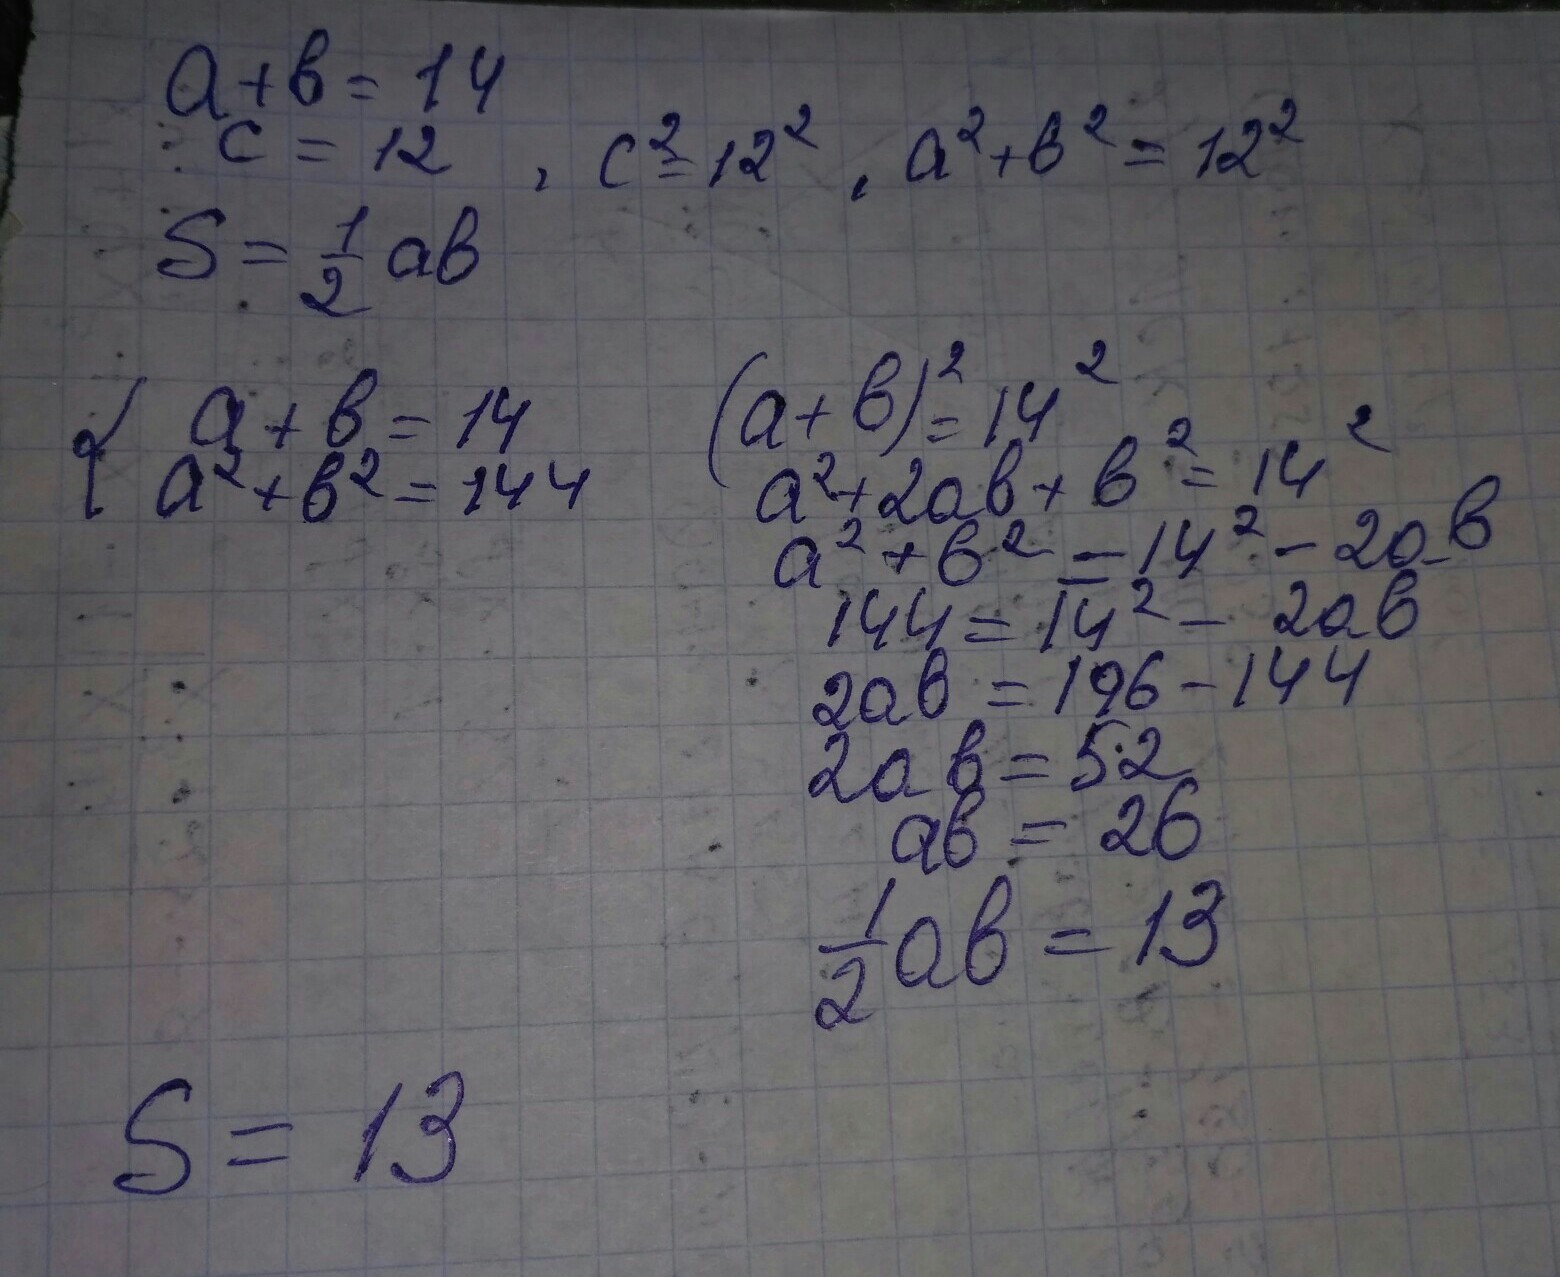 a+в=14
c=12, c²=12², a²+в²=12²
S=½ aв
{ a+в=14
a²+в²=144
(a+в)²=14²
a²+2aв+в²=14²
a²+в²=14²-2aв
144=14²-2aв
2aв=196-144
2aв=52
aв=26
½aв=13
S=13